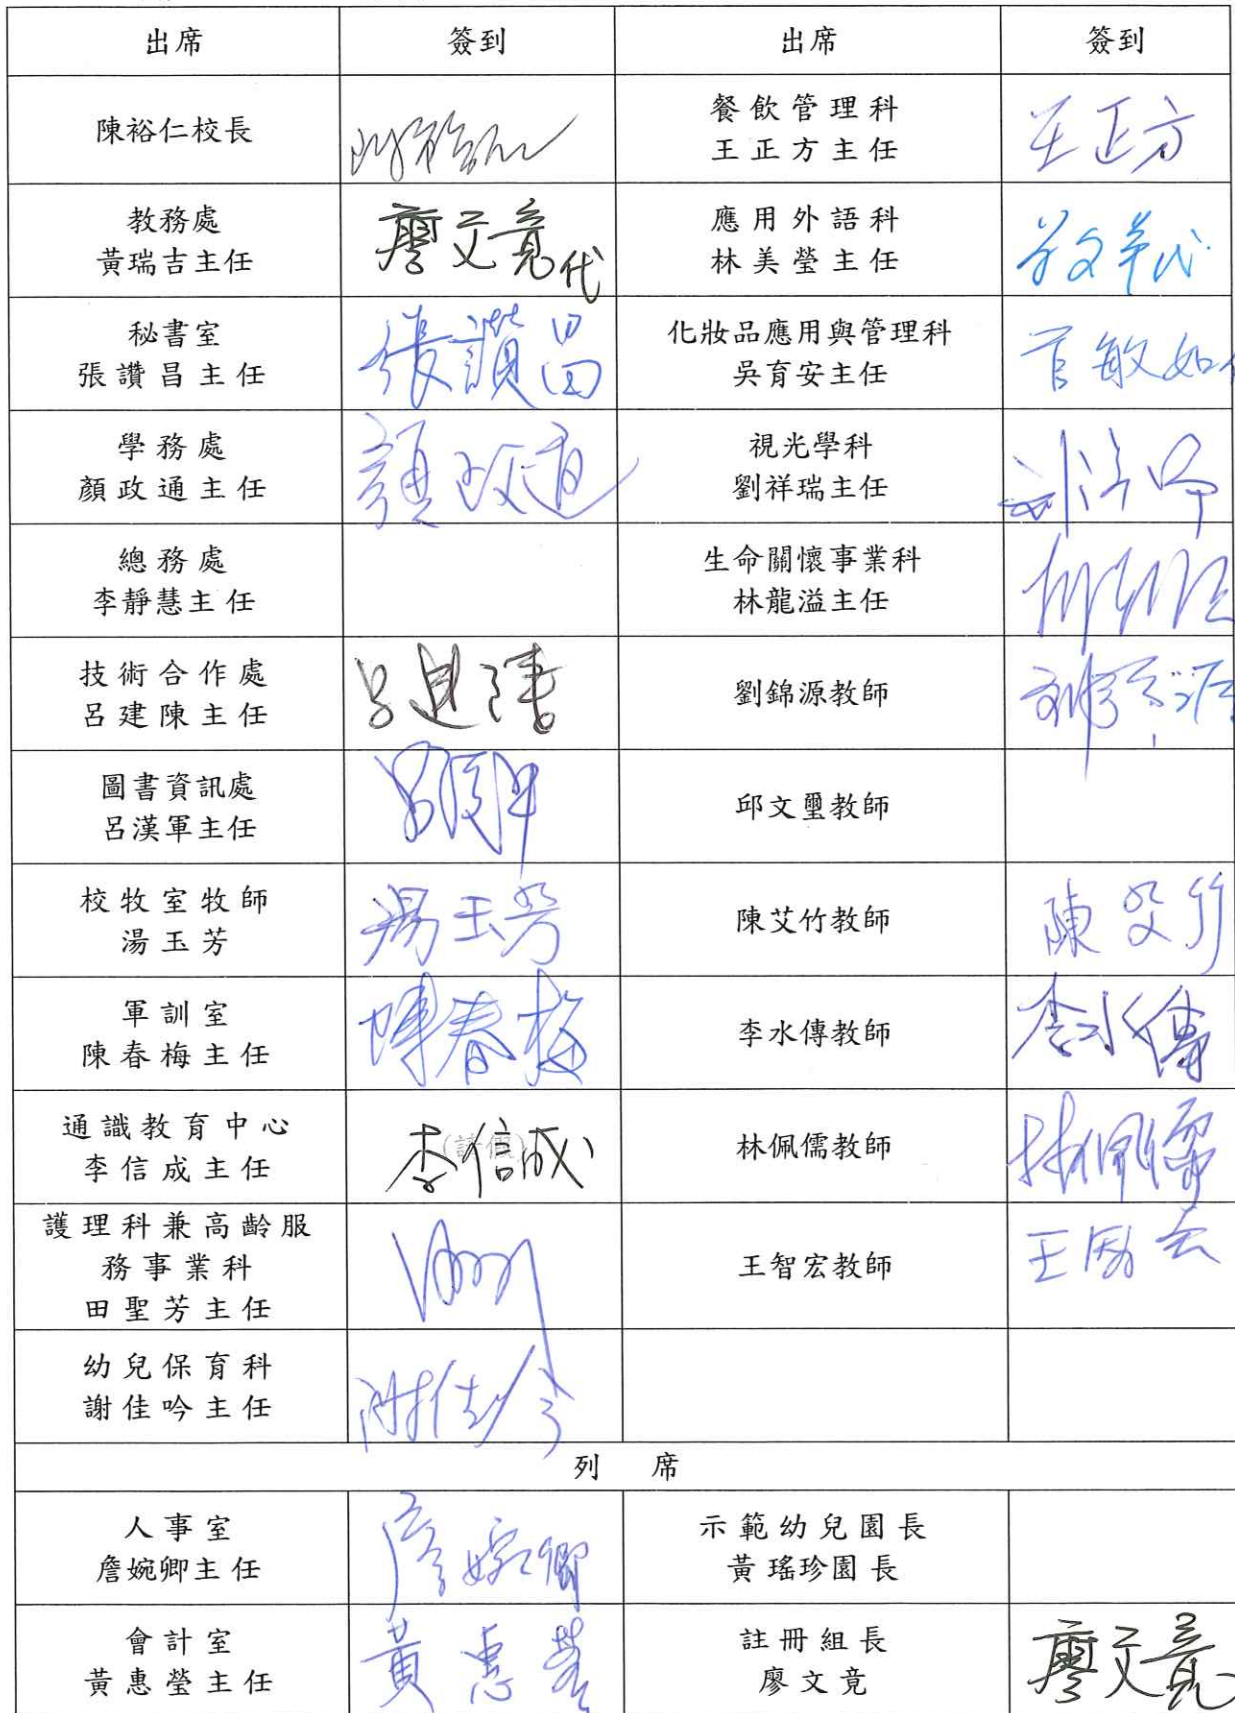 出席 簽到 出席 簽到
陳裕仁校長
餐飲管理科
王正方主任 王正方
教務處
黃瑞吉主任 廖文竟代
應用外語科
林美瑩主任
秘書室
張讚昌主任 張讚昌
化妝品應用與管理科
吳育安主任
學務處
顏政通主任 顏政通
視光學科
劉祥瑞主任
總務處
李靜慧主任
生命關懷事業科
林龍溢主任
技術合作處
呂建陳主任
劉錦源教師
圖書資訊處
呂漢軍主任
邱文璽教師
校牧室牧師
湯玉芳 湯玉芳
陳艾竹教師 陳艾竹
軍訓室
陳春梅主任 陳春梅
李水傳教師 李水傳
通識教育中心
李信成主任 (請假) 李信成
林佩儒教師 林佩儒
護理科兼高齡服
務事業科
田聖芳主任
王智宏教師
幼兒保育科
謝佳吟主任 謝佳吟
列 席
人事室
詹婉卿主任 詹婉卿
示範幼兒園長
黃瑤珍園長
會計室
黃惠瑩主任 黃惠瑩
註冊組長
廖文竟 廖文竟